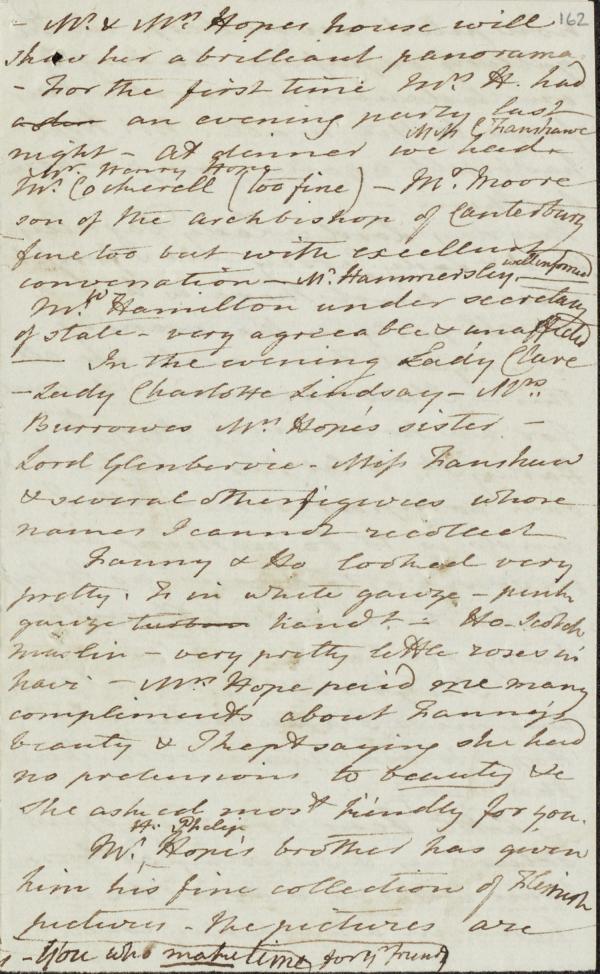 162
- Mr. & Mrs. Hopes house will
shew her a brilliant panorama
- For the first time Mrs H. had
an evening party last
night - At dinner we had
Miss C Fanshawe
Mr. Henry Hope
Mr. Cockerell (too fine) - Mr. Moore
son of the archbishop of Canterbury
fine too but with excellent
convenation - Mr. Hammersley well informed
Mr. Hamilton under secretary
of state - very agreeable & unaffected
- In the evening Lady Clare
- Lady Charlotte Lindsay - Mrs.
Burrowes Mrs Hope's sister -
Lord Glenbervie - Miss Fanshaw
& several other figures whose
names I cannot recollect
Fanny & Ho looked very
pretty. F in white gauze - pink
gauze turban handf. - Ho - Scotch
muslin - very pretty little roses in
hair - Mrs Hope paid me many
compliments about Fanny's
beauty & I kept saying she had
no pretensions to beauty &c
She asked most kindly for you.
H. Philip
Mr. Hope's brother has given
him his fine collection of Flemish
pictures - The pictures are
- You who make time for yr friends